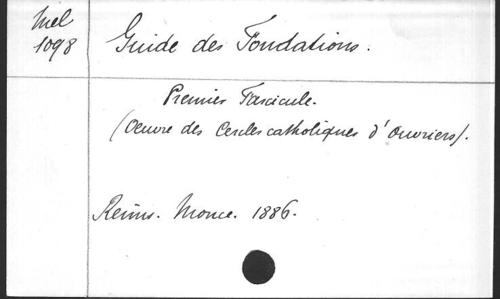 Miel
1098
Guide des Fondations.
Premier Fascicule.
(Oeuvre des Cercles catholiques d'Ouvriers).
Reims. Monce. 1886.